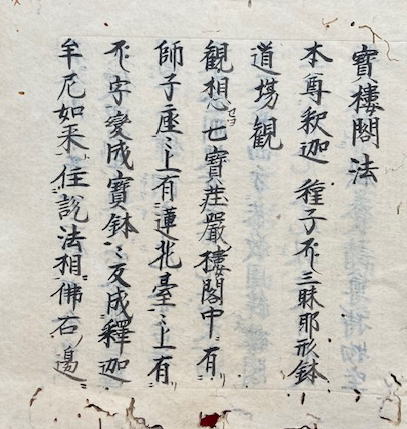 寶樓閣法
本尊釈迦 種子𑖥 三昧耶形鉢
道場觀
観想セヨ七寶荘嚴樓閣中有リ
師子座々上有蓮花臺々上有リ
字變成寶鉢々反成釋迦
牟尼如来住説法相佛右ノ邊ニ